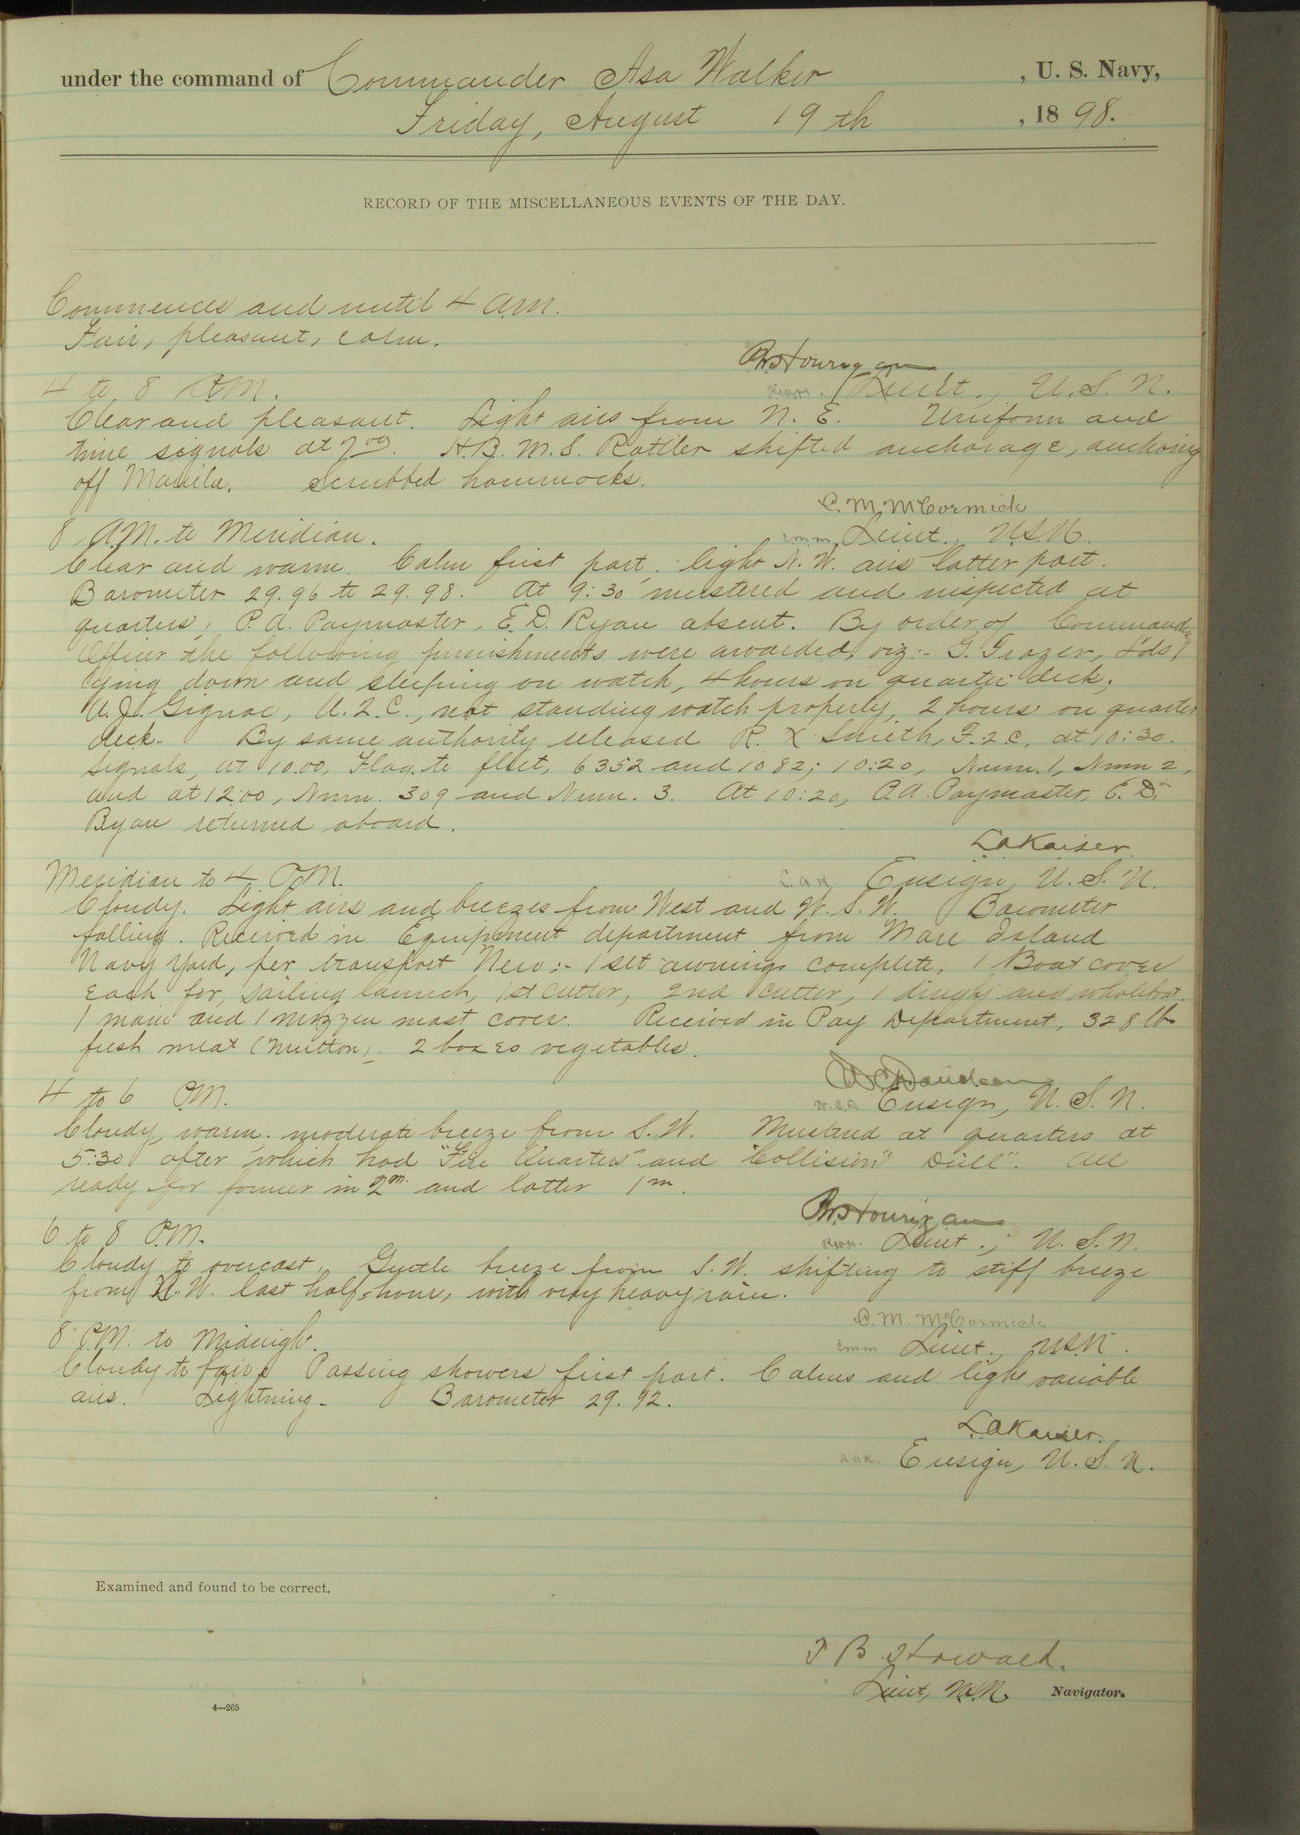 under the command of Commander Asa Walker , U. S. Navy,
Friday, August 19th , 1898.
RECORD OF THE MISCELLANEOUS EVENTS OF THE DAY.
Commences and until 4 A.M.
Fair, pleasant, calm.
P.W. Hourigan
4 to 8 A.M. Lieut., U.S.N.
Clear and pleasant. Light airs from N. E. Uniform and
time signals at 7 00. H.B.M.S. Rattler shifted anchorage, anchoring
off Manila. Scrubbed hammocks.
C. M. McCormick
8 A.M. to Meridian. Lieut., U.S.N.
Clear and warm. Calm first part, light N. W. airs latter part.
Barometer 29.96 to 29.98. At 9:30 mustered and inspected at
quarters; P. A. Paymaster, E. D. Ryan absent. By order of Commanding
Officer the following punishments were awarded, viz:- G. Frazer, Lds,
lying down and sleeping on watch, 4 hours on quarter deck;
A. J. Gignac, A. 2. C., not standing watch properly, 2 hours on quarter
deck. By same authority released R. X Smith, F. 2 C, at 10:30.
Signals, at 10.00, Flag to fleet, 6352 and 1082; 10:20, Num. 1, Num 2,
and at 12:00, Num. 309 and Num. 3. At 10:20, P.A. Paymaster, E. D.
Ryan returned aboard.
L A Kaiser
Meridian to 4 P.M. Ensign, U. S. N.
Cloudy. Light airs and breezes from West and W. S. W. Barometer
falling. Received in Equipment department from Mare Island
Navy Yard, per transport Nero:- 1 set awnings complete, 1 Boat cover
each for, sailing launch, 1st cutter, 2nd cutter, 1 dinghy and whaleboat.
1 main and 1 mizzen mast cover. Received in Pay Department, 328 lbs
fresh meat (Mutton), 2 boxes vegetables.
W C Davidson
4 to 6 P.M. Ensign, U. S. N.
Cloudy, warm. moderate breeze from S. W. Mustered at quarters at
5:30 after which had "Fire Quarters" and "Collision" Drill". All
ready for former in 2m. and latter 1m.
P.W. Hourigan
6 to 8 P.M. Lieut., U. S. N.
Cloudy to overcast. Gentle breeze from S. W. shifting to stiff breeze
from N. W. last half-hour, with very heavy rain.
C. M. McCormick
8 P.M. to Midnight. Lieut., U.S.N.
Cloudy to fair. Passing showers first part. Calms and light variable
airs. Lightning. Barometer 29.92.
L A Kaiser.
Ensign, U. S. N.
Examined and found to be correct.
T B Howard.
Lieut, U.S.N. Navigator.
4—265